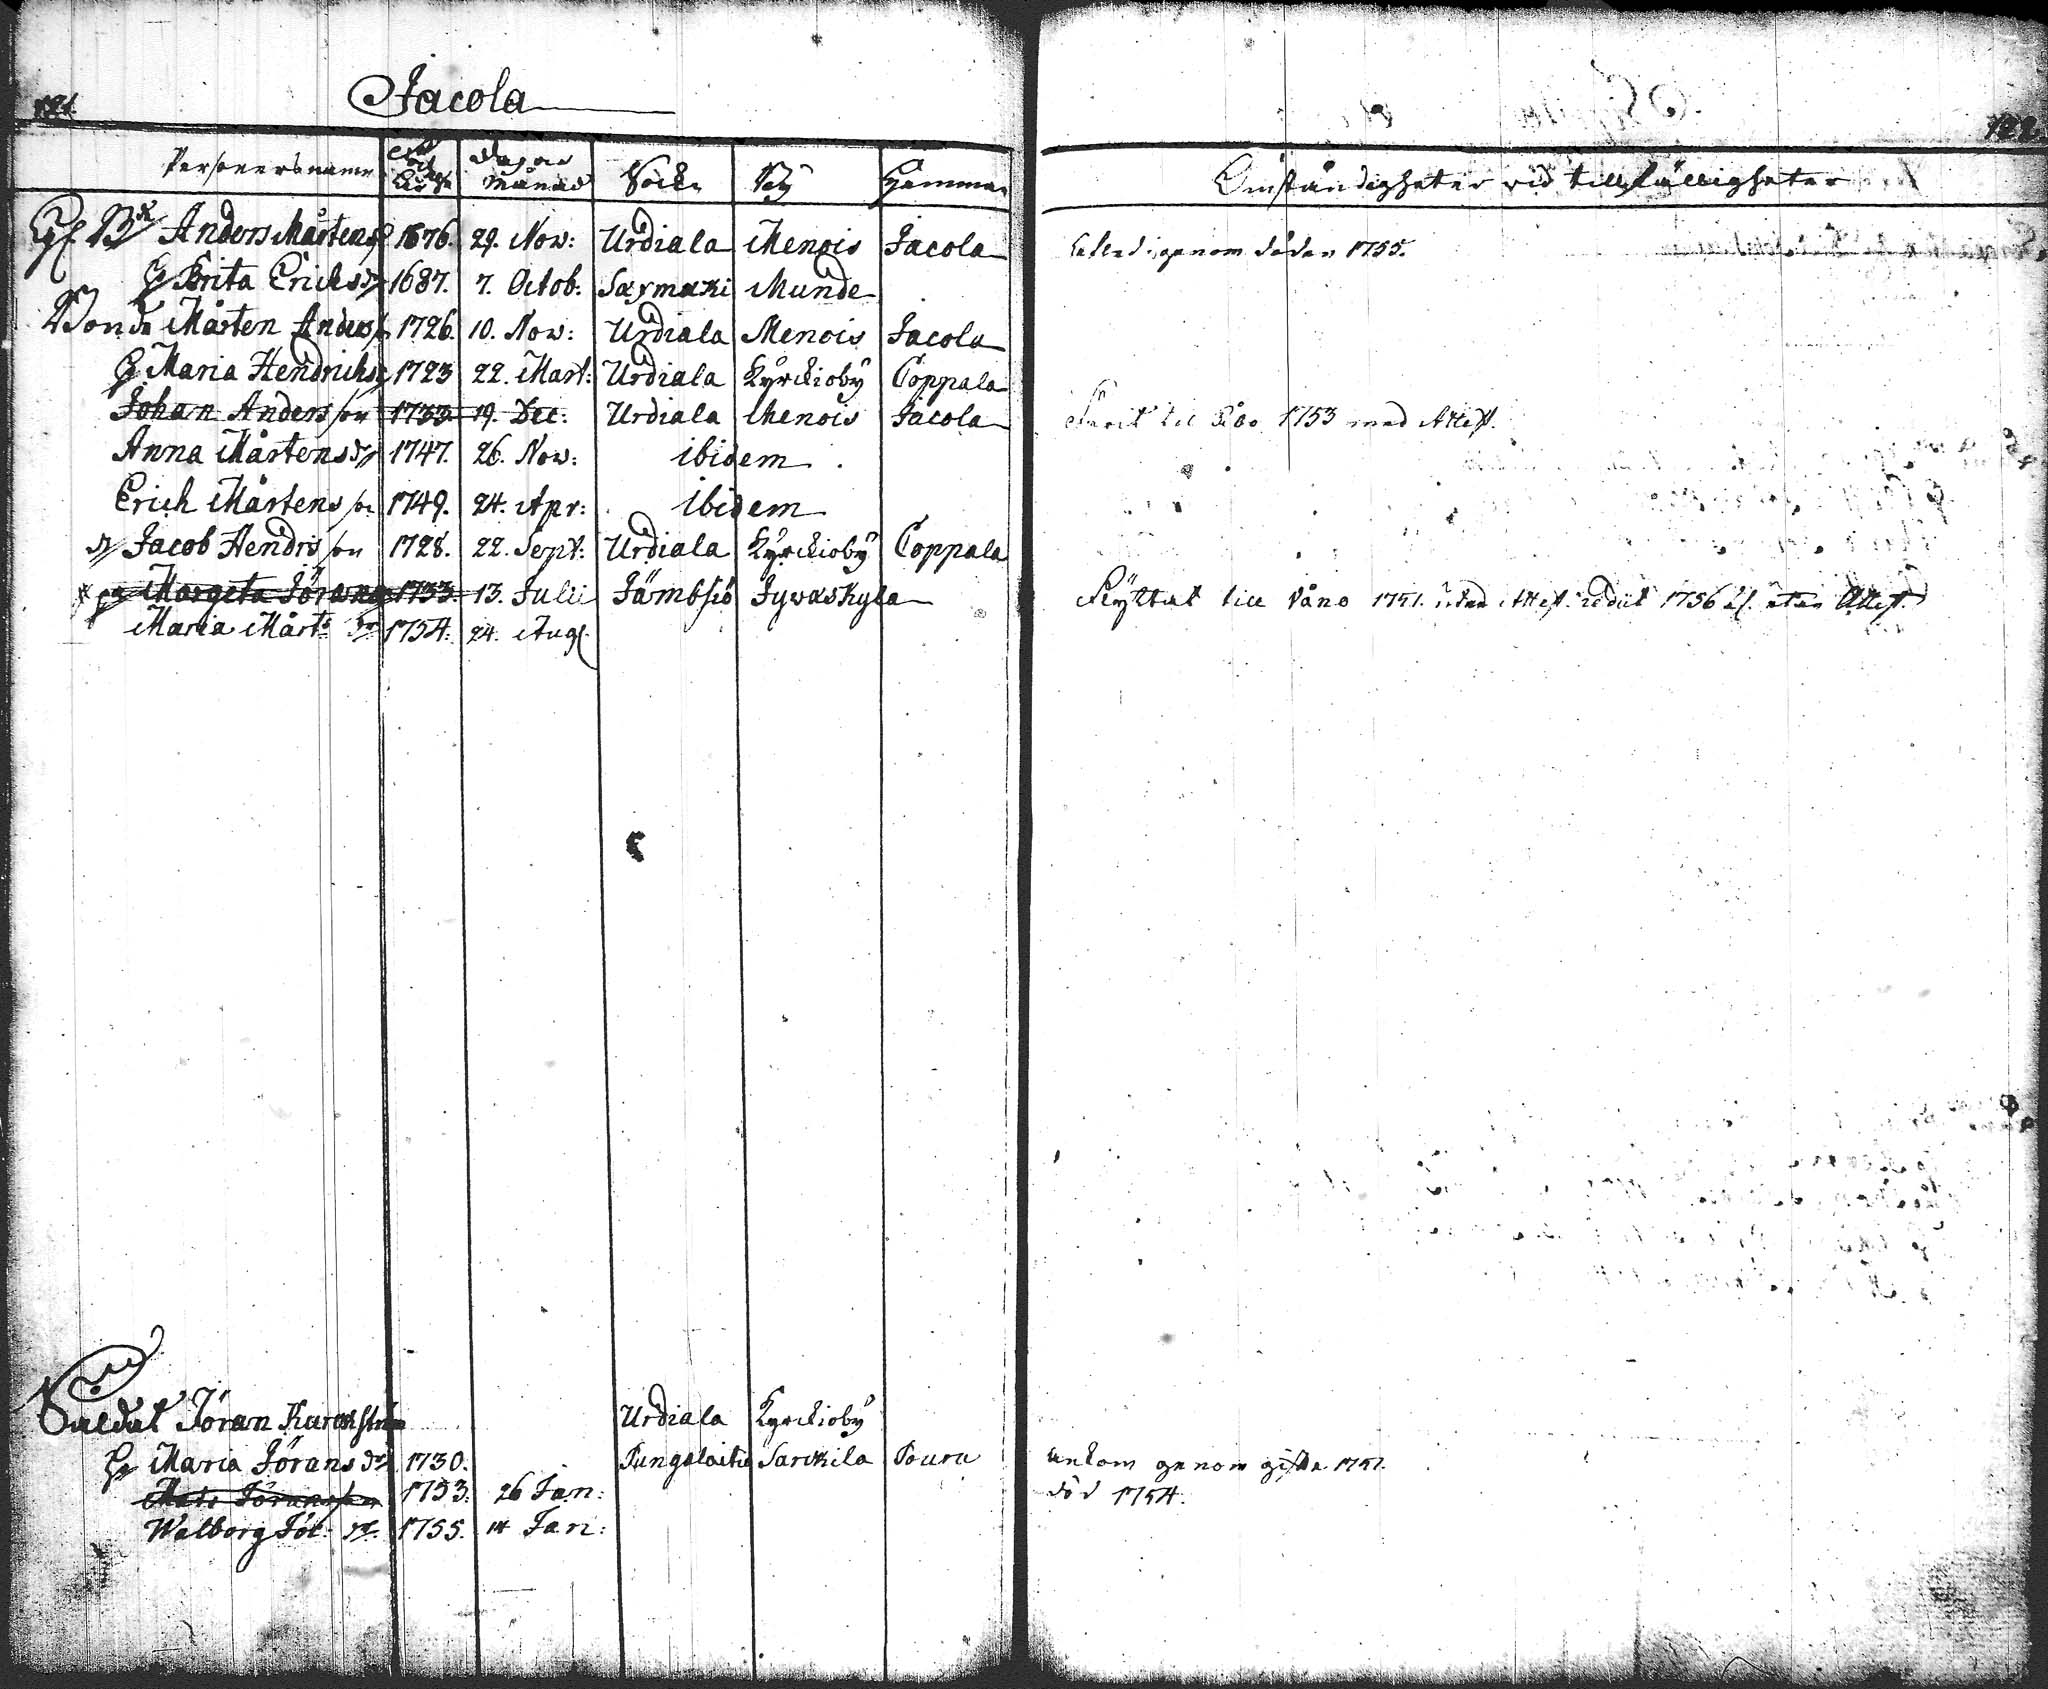 121.
Jacola
Personers namn
Dag oc Månad
Sockn
Bÿ
Hemman
Gf. Bd Anders Mårtens 1676. 29. Nov: Urdiala Menois Jacola
H Brita Erichsdr 1687. 7. Octob: Saxmaki Munde
Bonde Mårten Anders 1726. 10. Nov: Urdiala Menois Jacola
H Maria Hendrichs 1723 22. Mart: Urdiala Kÿrckiobÿ Coppala
Johan Andersson 1733. 19. Dec: Urdiala Menois Jacola
Anna Mårtensdr 1747. 26. Nov: ibidem
Erich Mårtensson 1749. 24. Apr: ibidem
Jacob Hendrsson 1728. 22. Sept: Urdiala Kÿrckiobÿ Coppala
Margeta Jörans 1733. 13. Julii Jämbsiö Jywäskyla
Maria Mårt: dr 1754. 24. Aug.
Saldat Jöran Kurckström Urdiala Kyrckiobÿ
H Maria Jöransdr 1730. Pungalaitio Sarckila Pouru
Mats Jöransson 1753. 26 Jan:
Walborg Jör: dr 1755. 14 Jan:
122.
Omständigheter vid tillfälligheter
genom döden 1755.
til Åbo 1753 med Attest.
Flÿttat till Våno 1751. utan Attest. 1756 utan Attest.
ankom genom gifte 1751.
död 1754.